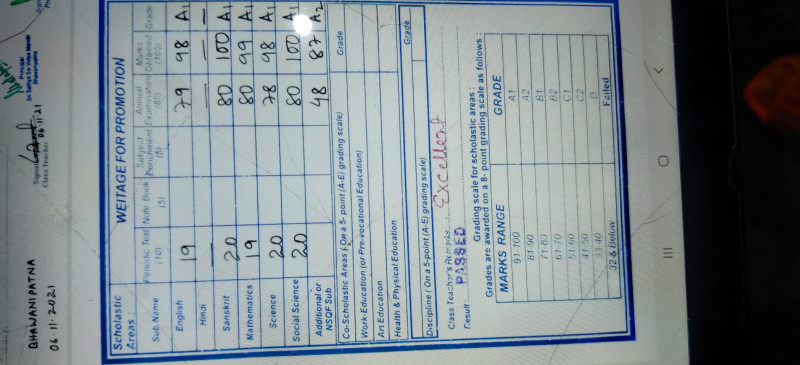 BHAWANIPATNA
06.11.2021
06.11.21
Class Teacher
Principal
WEITAGE FOR PROMOTION
Scholastic Areas :
Sub Name Periodic Test (10) Note Book (5) Subject Enrichment (5) Annual Examination (80) Marks Obtained (100) Grade
English 19 79 98 A1
Hindi — — — –
Sanskrit 20 80 100 A1
Mathematics 19 80 99 A1
Science 20 78 98 A1
Social Science 20 80 100 A1
Additional or NSQF Sub 48 87 A2
Co-Scholastic Areas (On a 5- point (A-E) grading scale) Grade
Work-Education (or Pre-vocational Education)
Art Education
Health & Physical Education
Grade
Discipline ( On a 5-point (A-E) grading scale)
Class Teacher's Remarks Excellent
Result PASSED
Grading scale for scholastic areas :
Grades are awarded on a 8- point grading scale as follows :
MARKS RANGE GRADE
91-100 A1
81-90 A2
71-80 B1
61-70 B2
51-60 C1
41-50 C2
33-40 D
32 & Below Failed